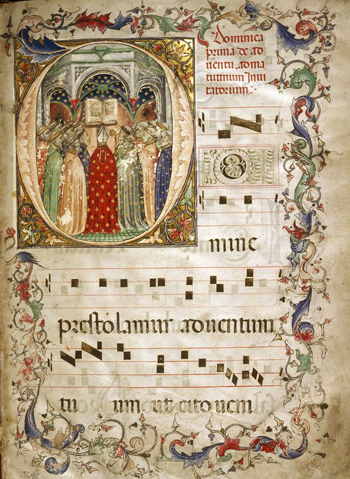 Dominica
prima de ad
uentu ad ma
tutinum Inui
tatorium
DO
mine
prestolamur aduentum
tu um ut cito ueni